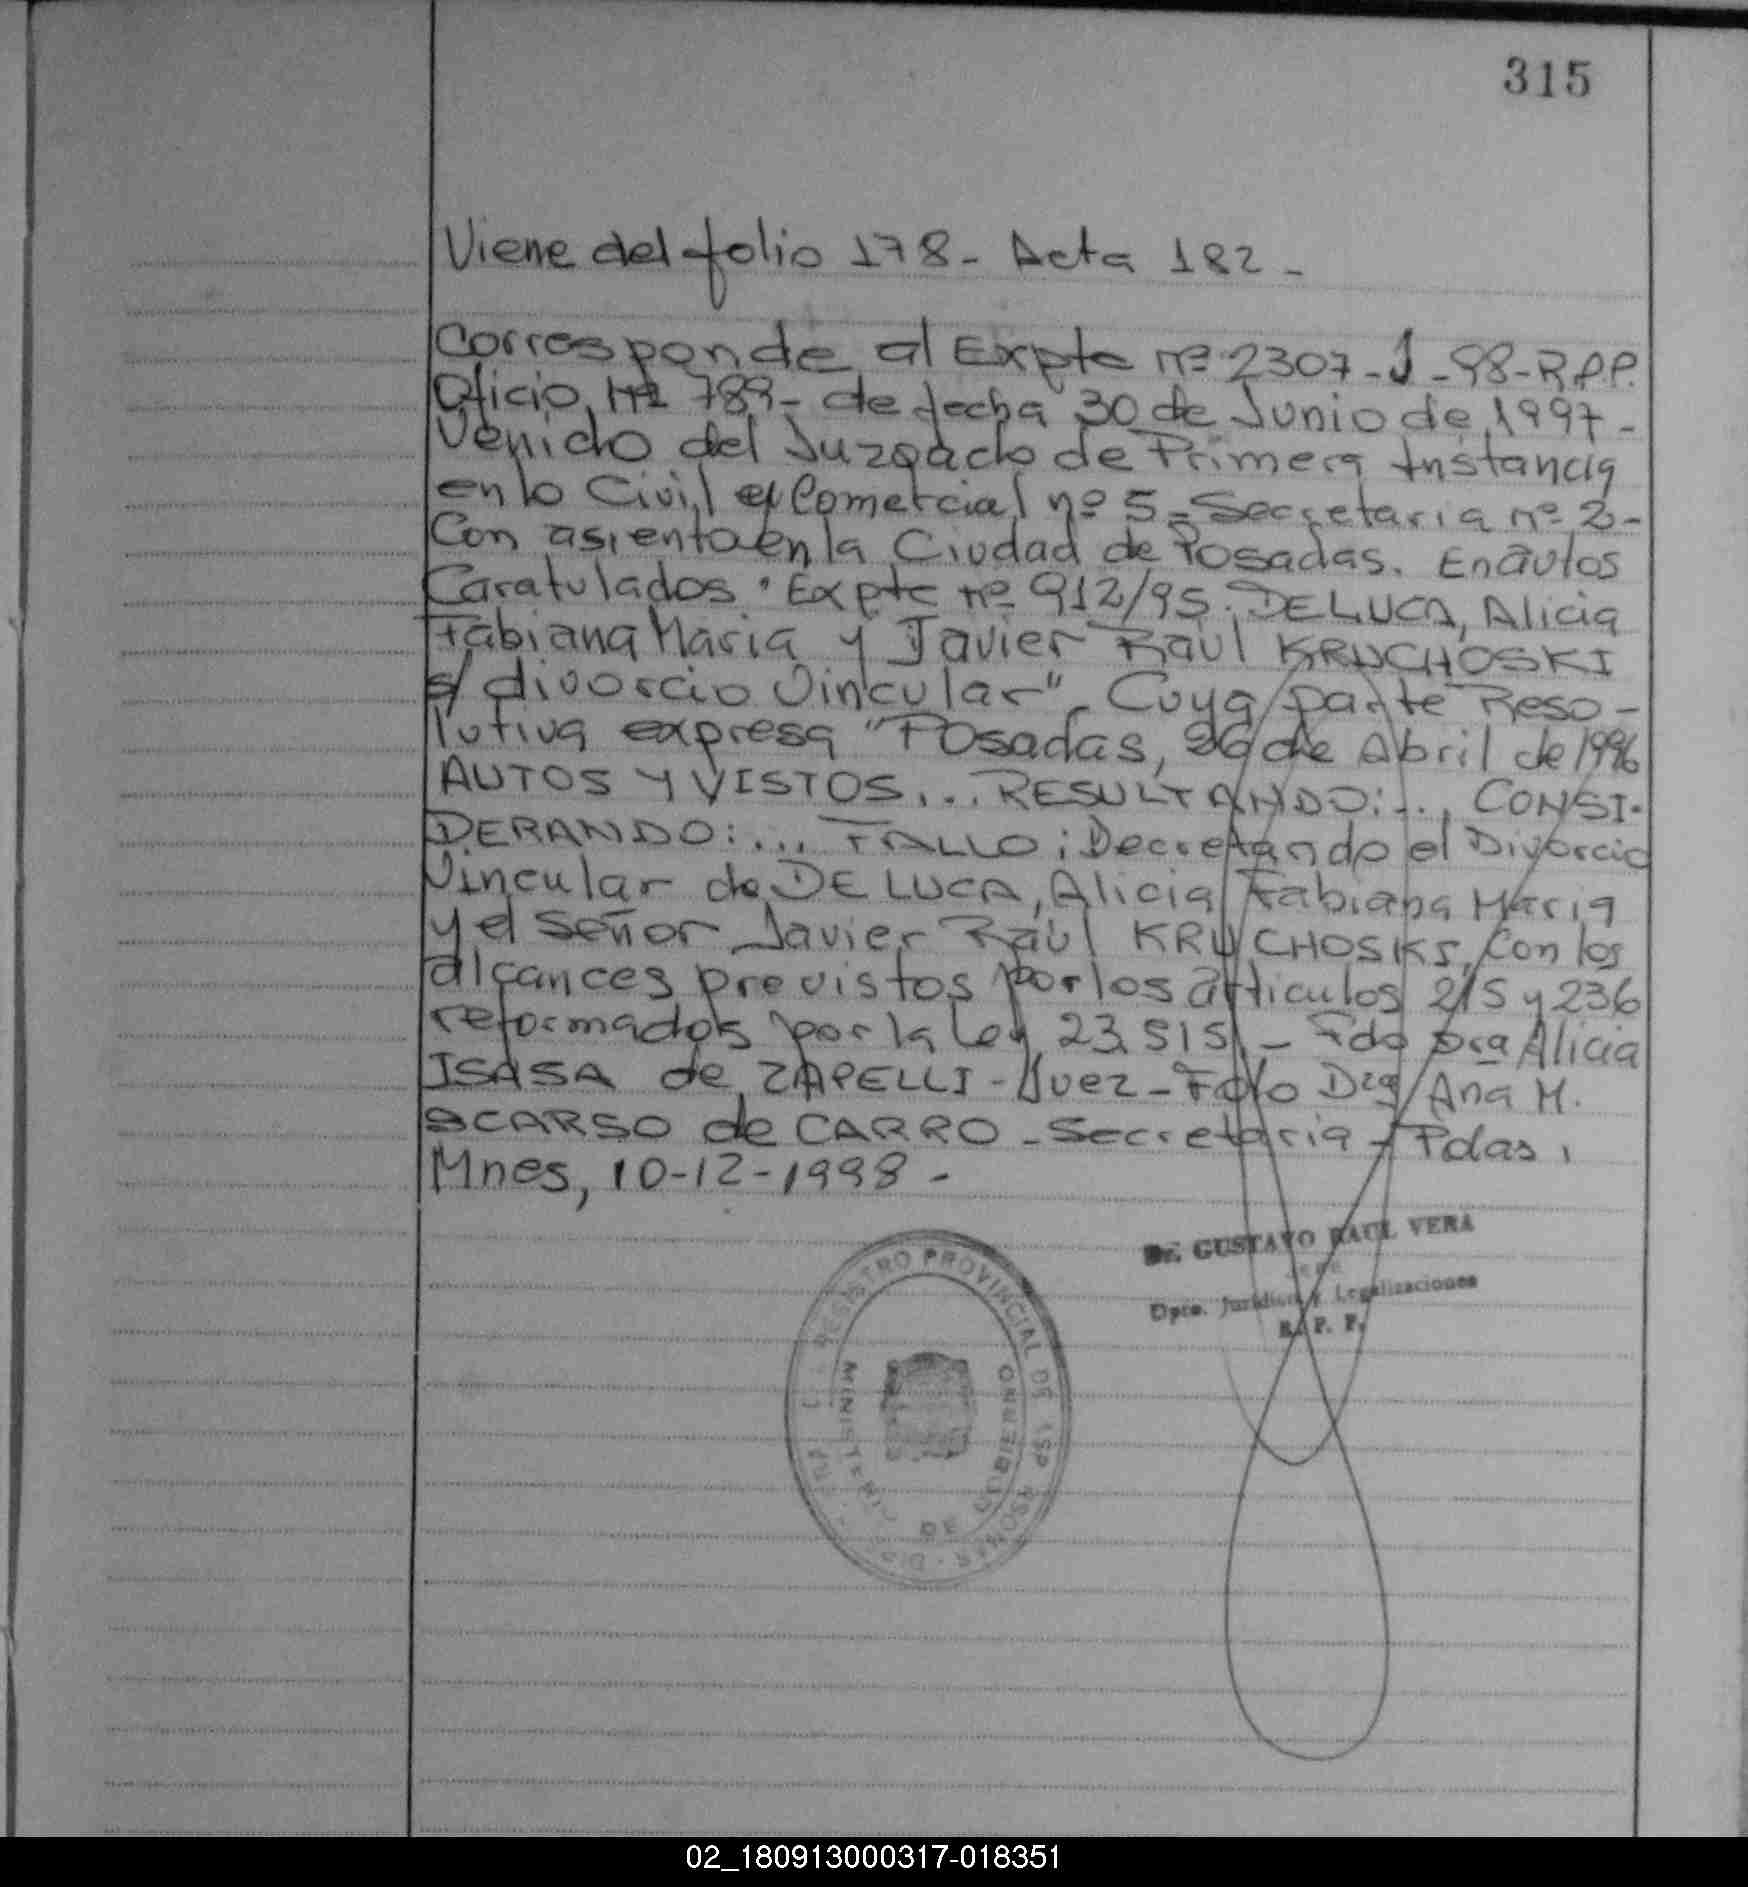 315
Viene del folio 178 - Acta 182 -
Corresponde al Expte nº 2307 - J - 98 - R.P.P.
Oficio Nº 789 - de fecha 30 de Junio de 1997 -
Venido del Juzgado de Primera Instancia
en lo Civil y Comercial nº 5 - Secretaria nº 2 -
Con asiento en la Ciudad de Posadas. En autos
Caratulados "Expte nº 912/95. DE LUCA, Alicia
Fabiana Maria y Javier Raúl KRUCHOSKI
s/ divorcio Vincular" - Cuya parte Reso -
lutiva expresa "Posadas, 26 de Abril de 1996
AUTOS Y VISTOS... RESULTANDO:..., CONSI-
DERANDO:... FALLO: Decretando el Divorcio
Vincular de DE LUCA, Alicia Fabiana Maria
y el Señor Javier Raúl KRUCHOSKI, con los
alcances previstos por los articulos 215 y 236
reformados por la Ley 23.515. - Fdo Dra Alicia
ISASA de ZAPELLI - Juez - Fdo Dra Ana M.
SCARSO de CARRO - Secretaria - Pdas,
Mnes, 10-12-1998 -
Dr. GUSTAVO RAUL VERA
JEFE
Dpto. Jurídico y Legalizaciones
R. P. P.
REGISTRO PROVINCIAL DE LAS PERSONAS
MINISTERIO DE GOBIERNO
02_180913000317-018351